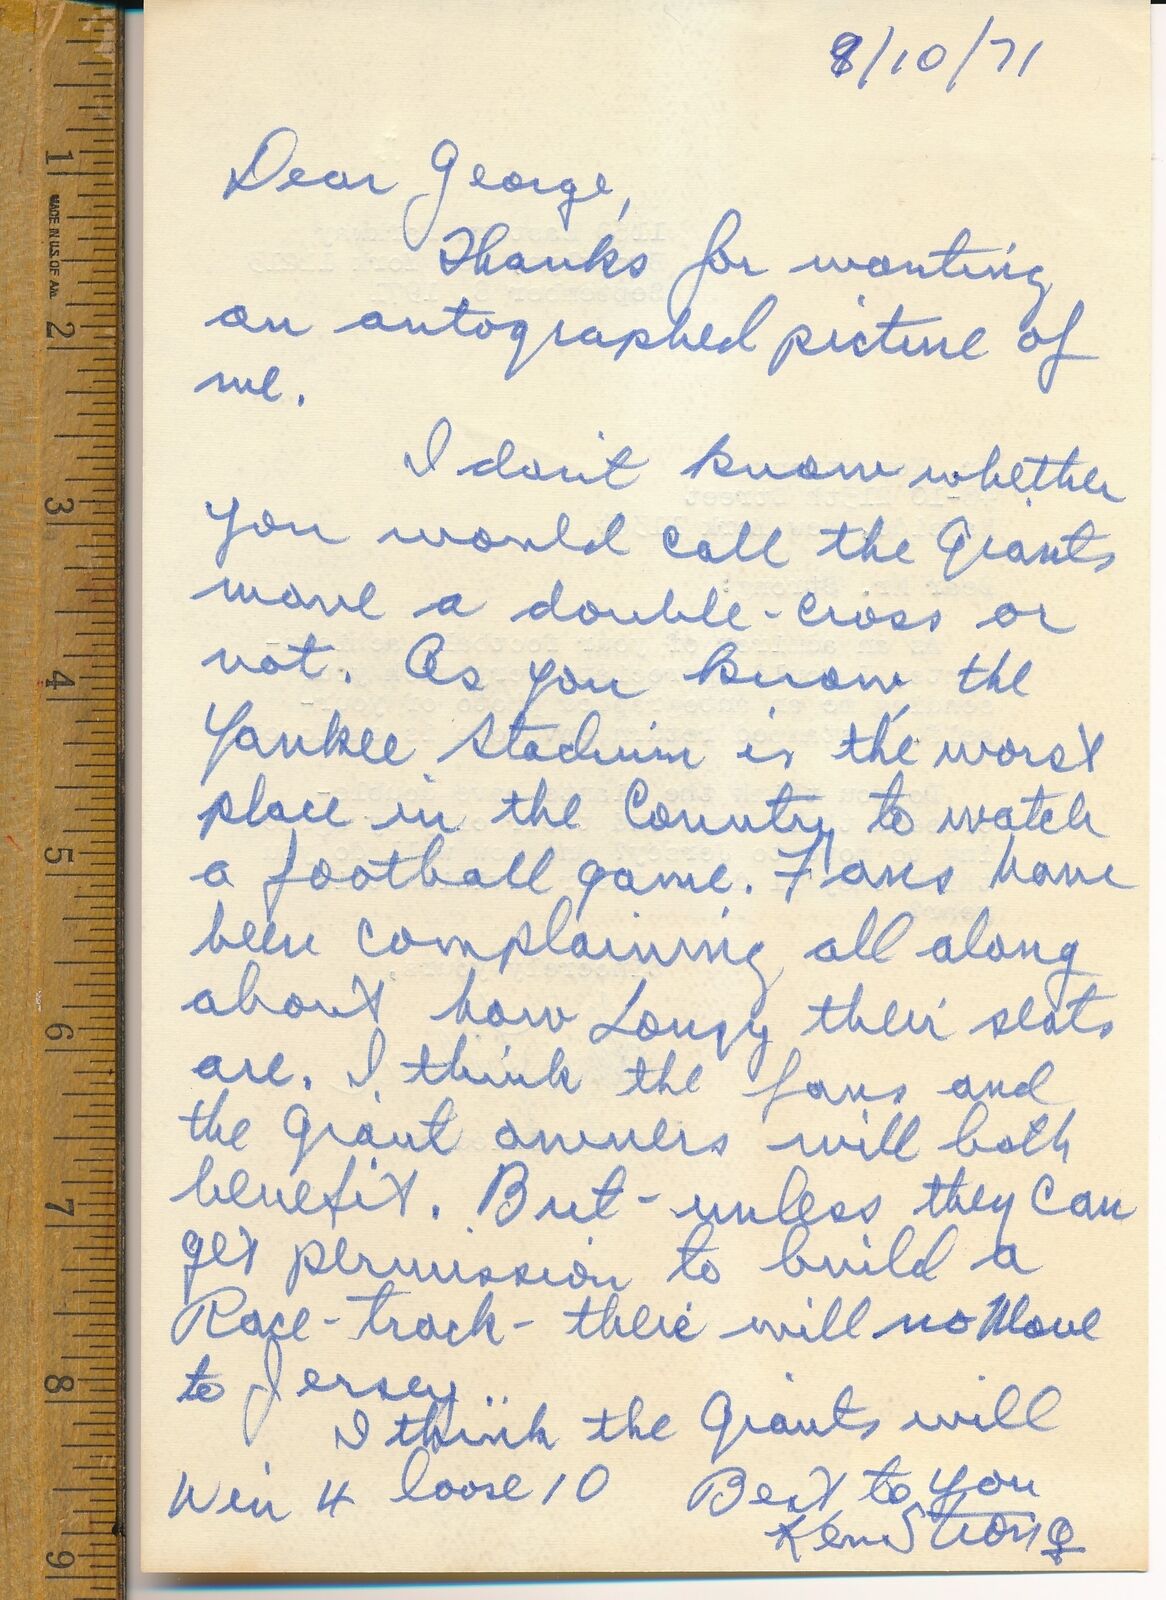 8/10/71
Dear George,
Thanks for wanting
an autographed picture of
me.
I don't know whether
you would call the Giants
move a double-cross or
not. As you know, the
Yankee Stadium is the worst
place in the Country to watch
a football game. Fans have
been complaining all along
about how Lousy their seats
are. I think the fans and
the Giant owners will both
benefit. But - unless they can
get permission to build a
Race-track - there will no Move
to Jersey..
I think the Giants will
Win 4 loose 10 Best to you
Ken Strong
1
MADE IN U.S. OF AM.
2
3
4
5
6
7
8
9